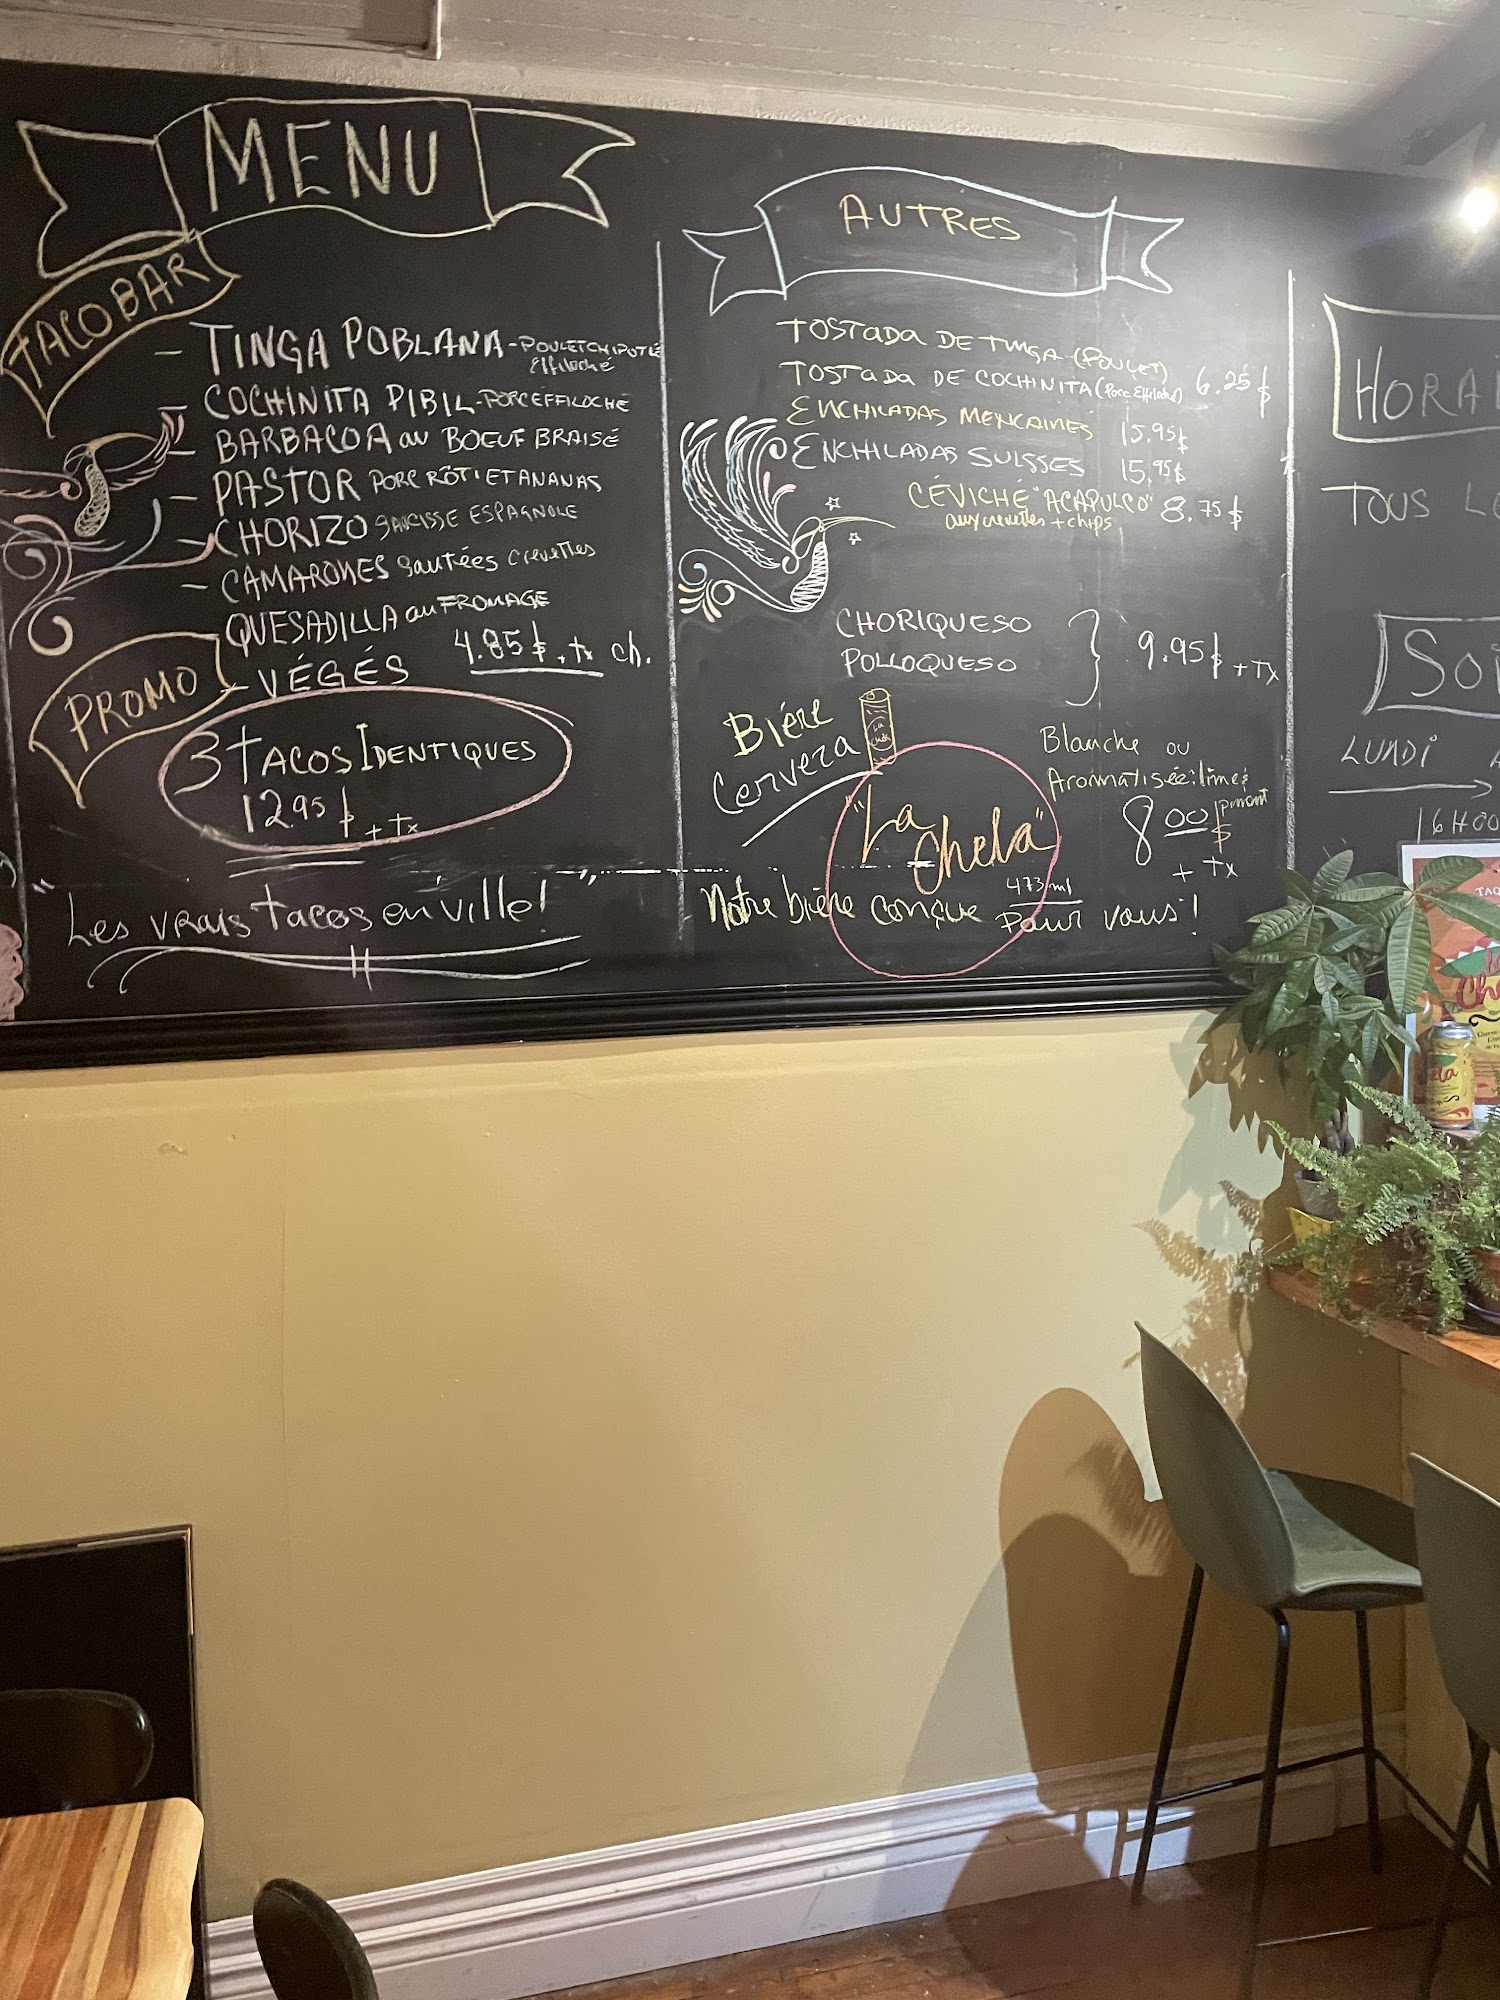 MENU
TACO BAR
- TINGA POBLANA - POULET CHIPOTLE
Effiloché
- COCHINITA PIBIL - PORC EFFILOCHÉ
- BARBACOA au BOEUF BRAISÉ
- PASTOR PORC RÔTI ET ANANAS
- CHORIZO SAUCISSE ESPAGNOLE
- CAMARONES sautées crevettes
QUESADILLA au FROMAGE
- VÉGÉS 4.85$ + tx ch.
PROMO
3 TACOS IDENTIQUES
12.95$ + tx
"Les vrais tacos en ville!"
AUTRES
TOSTADA DE TINGA (POULET)
TOSTADA DE COCHINITA (Porc Effiloché) 6.25$
ENCHILADAS MEXICAINES 15.95$
ENCHILADAS SUISSES 15.95$
CÉVICHÉ "ACAPULCO" 8.75$
aux crevettes + chips
CHORIQUESO
POLLOQUESO
9.95$ + TX
Bière
Cerveza
"La
Chela"
473 ml
Blanche ou
Aromatisée: lime &
piment
8.00$
+ Tx
Notre bière conçue pour vous!
HORAI
TOUS
LUNDI
16H00